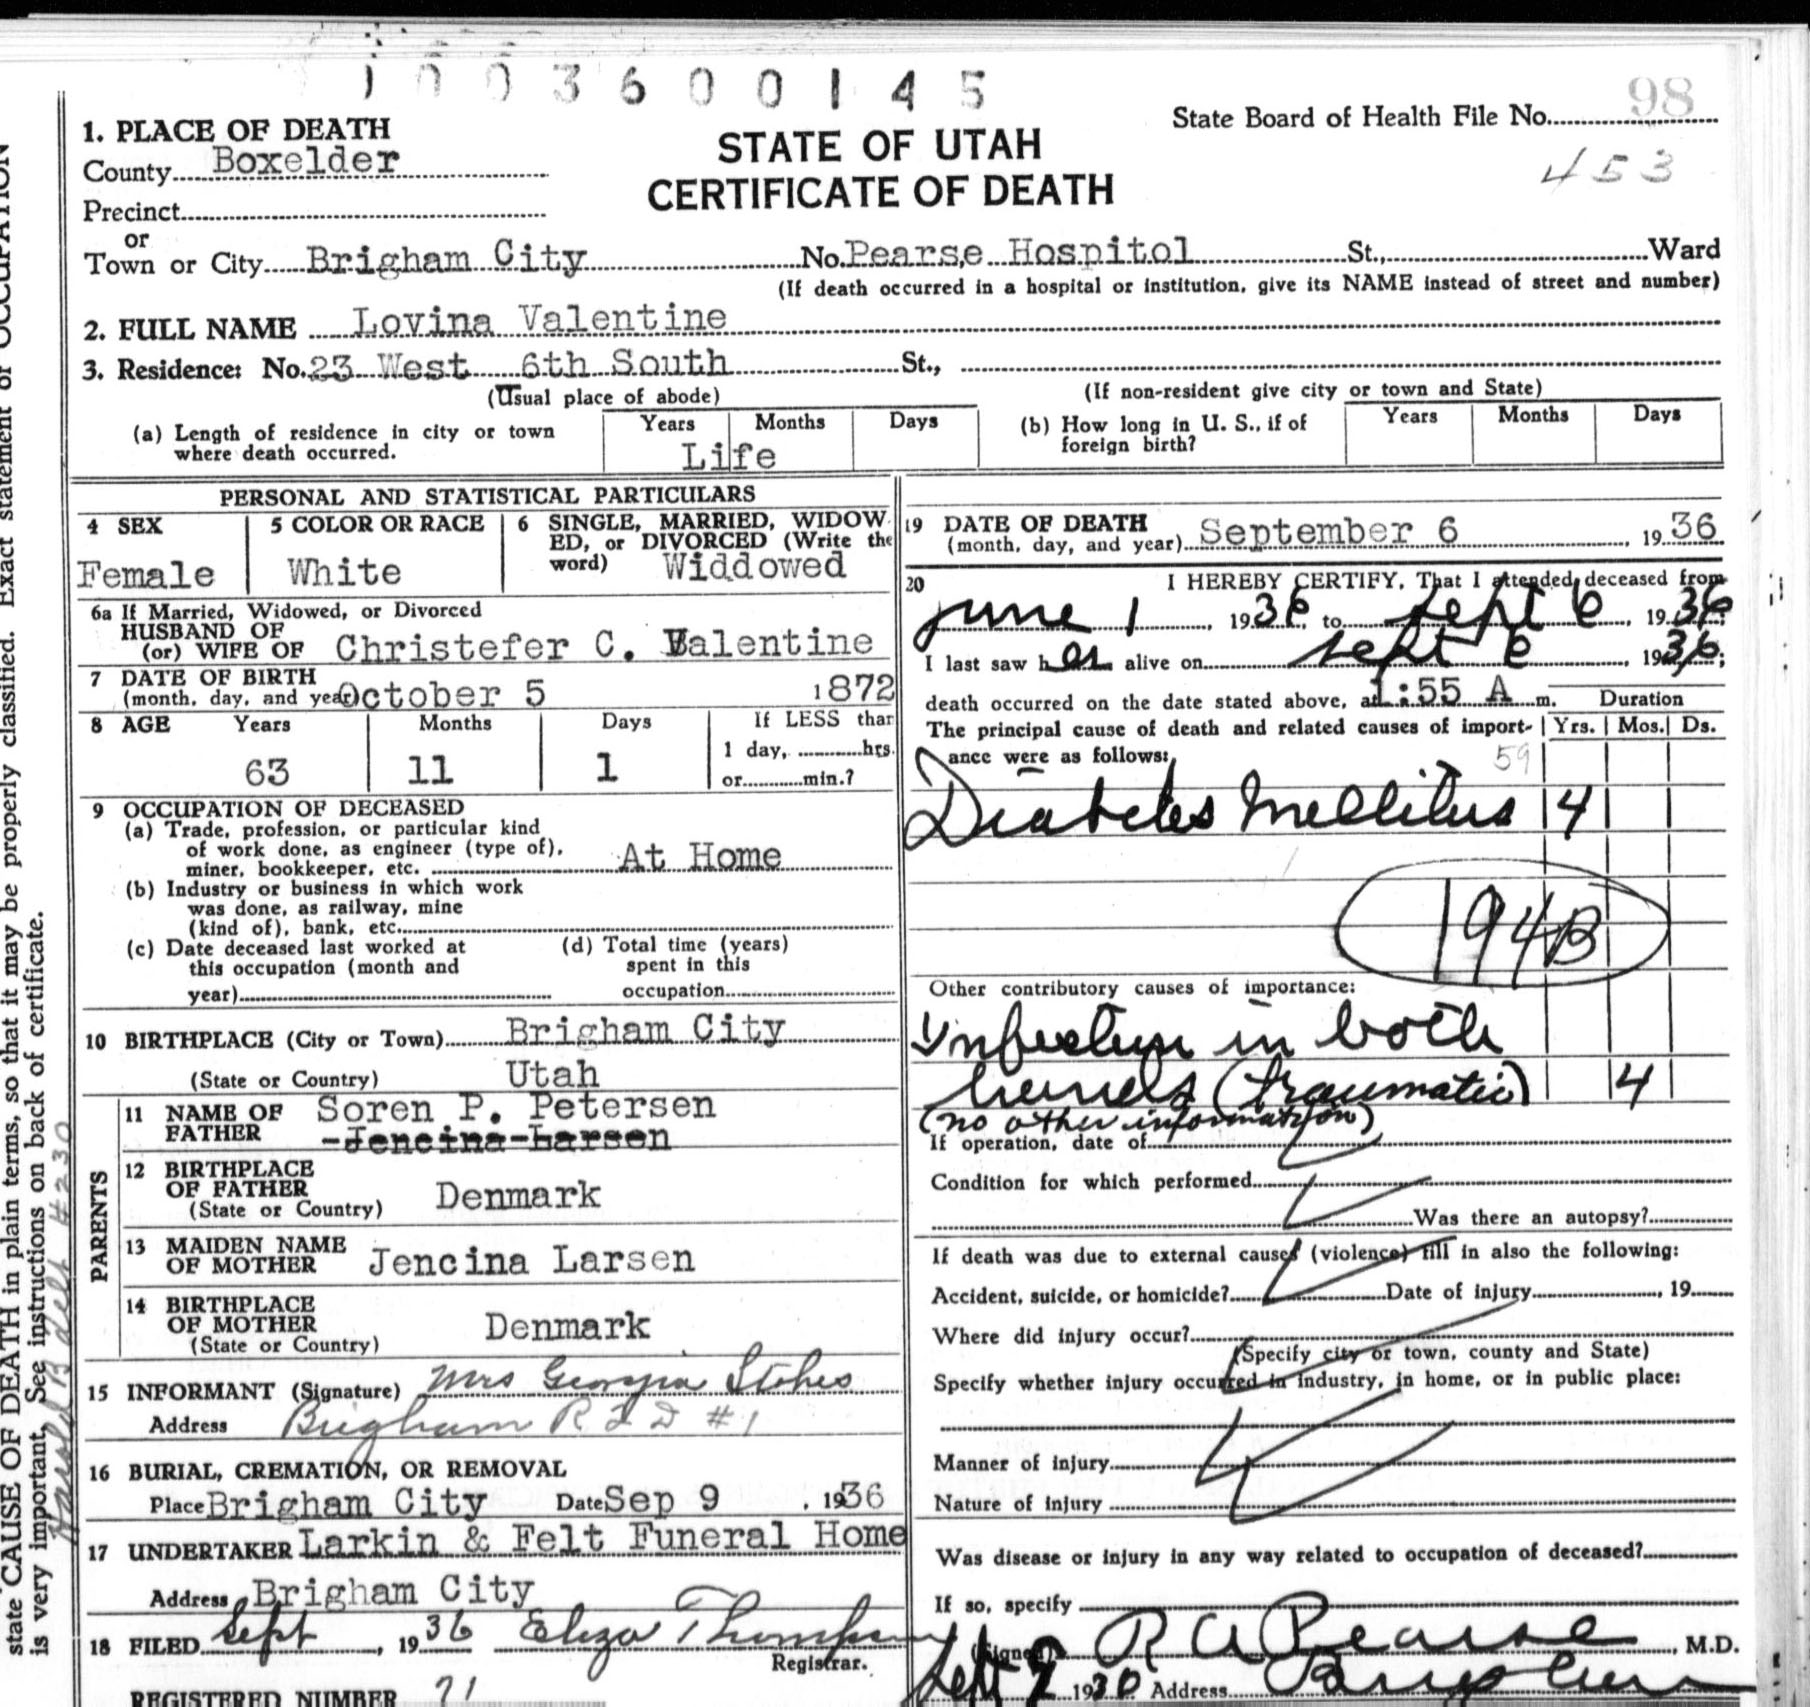 1003600145
State Board of Health File No. 98
453
1. PLACE OF DEATH
STATE OF UTAH
CERTIFICATE OF DEATH
County Boxelder
Precinct
or
Town or City Brigham City No. Pearse Hospitol St., Ward
(If death occurred in a hospital or institution, give its NAME instead of street and number)
2. FULL NAME Lovina Valentine
3. Residence: No. 23 West 6th South St.,
(Usual place of abode) (If non-resident give city or town and State)
(a) Length of residence in city or town where death occurred. Years Months Days
Life
(b) How long in U. S., if of foreign birth? Years Months Days
PERSONAL AND STATISTICAL PARTICULARS
4 SEX
Female
5 COLOR OR RACE
White
6 SINGLE, MARRIED, WIDOW
ED, or DIVORCED (Write the
word) Widdowed
6a If Married, Widowed, or Divorced
HUSBAND OF
(or) WIFE OF Christefer C. Valentine
7 DATE OF BIRTH
(month, day, and year) October 5 1872
8 AGE Years Months Days If LESS than
1 day, hrs.
63 11 1 or min.?
9 OCCUPATION OF DECEASED
(a) Trade, profession, or particular kind
of work done, as engineer (type of),
miner, bookkeeper, etc. At Home
(b) Industry or business in which work
was done, as railway, mine
(kind of), bank, etc.
(c) Date deceased last worked at
this occupation (month and
year)
(d) Total time (years)
spent in this
occupation
10 BIRTHPLACE (City or Town) Brigham City
(State or Country) Utah
PARENTS
11 NAME OF FATHER Soren P. Petersen
Jencina Larsen
12 BIRTHPLACE
OF FATHER
(State or Country) Denmark
13 MAIDEN NAME
OF MOTHER Jencina Larsen
14 BIRTHPLACE
OF MOTHER
(State or Country) Denmark
15 INFORMANT (Signature) Mrs Georgia Stokes
Address Brigham R F D #1
16 BURIAL, CREMATION, OR REMOVAL
Place Brigham City Date Sep 9, 1936
17 UNDERTAKER Larkin & Felt Funeral Home
Address Brigham City
18 FILED Sept, 1936 Eliza Thompson
Registrar.
REGISTERED NUMBER 71
19 DATE OF DEATH
(month, day, and year) September 6, 1936
20 I HEREBY CERTIFY, That I attended deceased from
June 1, 1936, to Sept 6, 1936;
I last saw her alive on Sept 6, 1936;
death occurred on the date stated above, at 1:55 A m. Duration
The principal cause of death and related causes of import- Yrs. Mos. Ds.
ance were as follows: 59
Diabetes Mellitus 4
194B
Other contributory causes of importance:
Infection in both
heels (traumatic) 4
(no other information)
If operation, date of
Condition for which performed
Was there an autopsy?
If death was due to external causes (violence) fill in also the following:
Accident, suicide, or homicide? Date of injury, 19
Where did injury occur?
(Specify city or town, county and State)
Specify whether injury occurred in industry, in home, or in public place:
Manner of injury
Nature of injury
Was disease or injury in any way related to occupation of deceased?
If so, specify
(Signed) R A Pearse, M.D.
Sept 1930 Address
state CAUSE OF DEATH in plain terms, so that it may be properly classified. Exact statement of OCCUPATION
is very important. See instructions on back of certificate.
#230